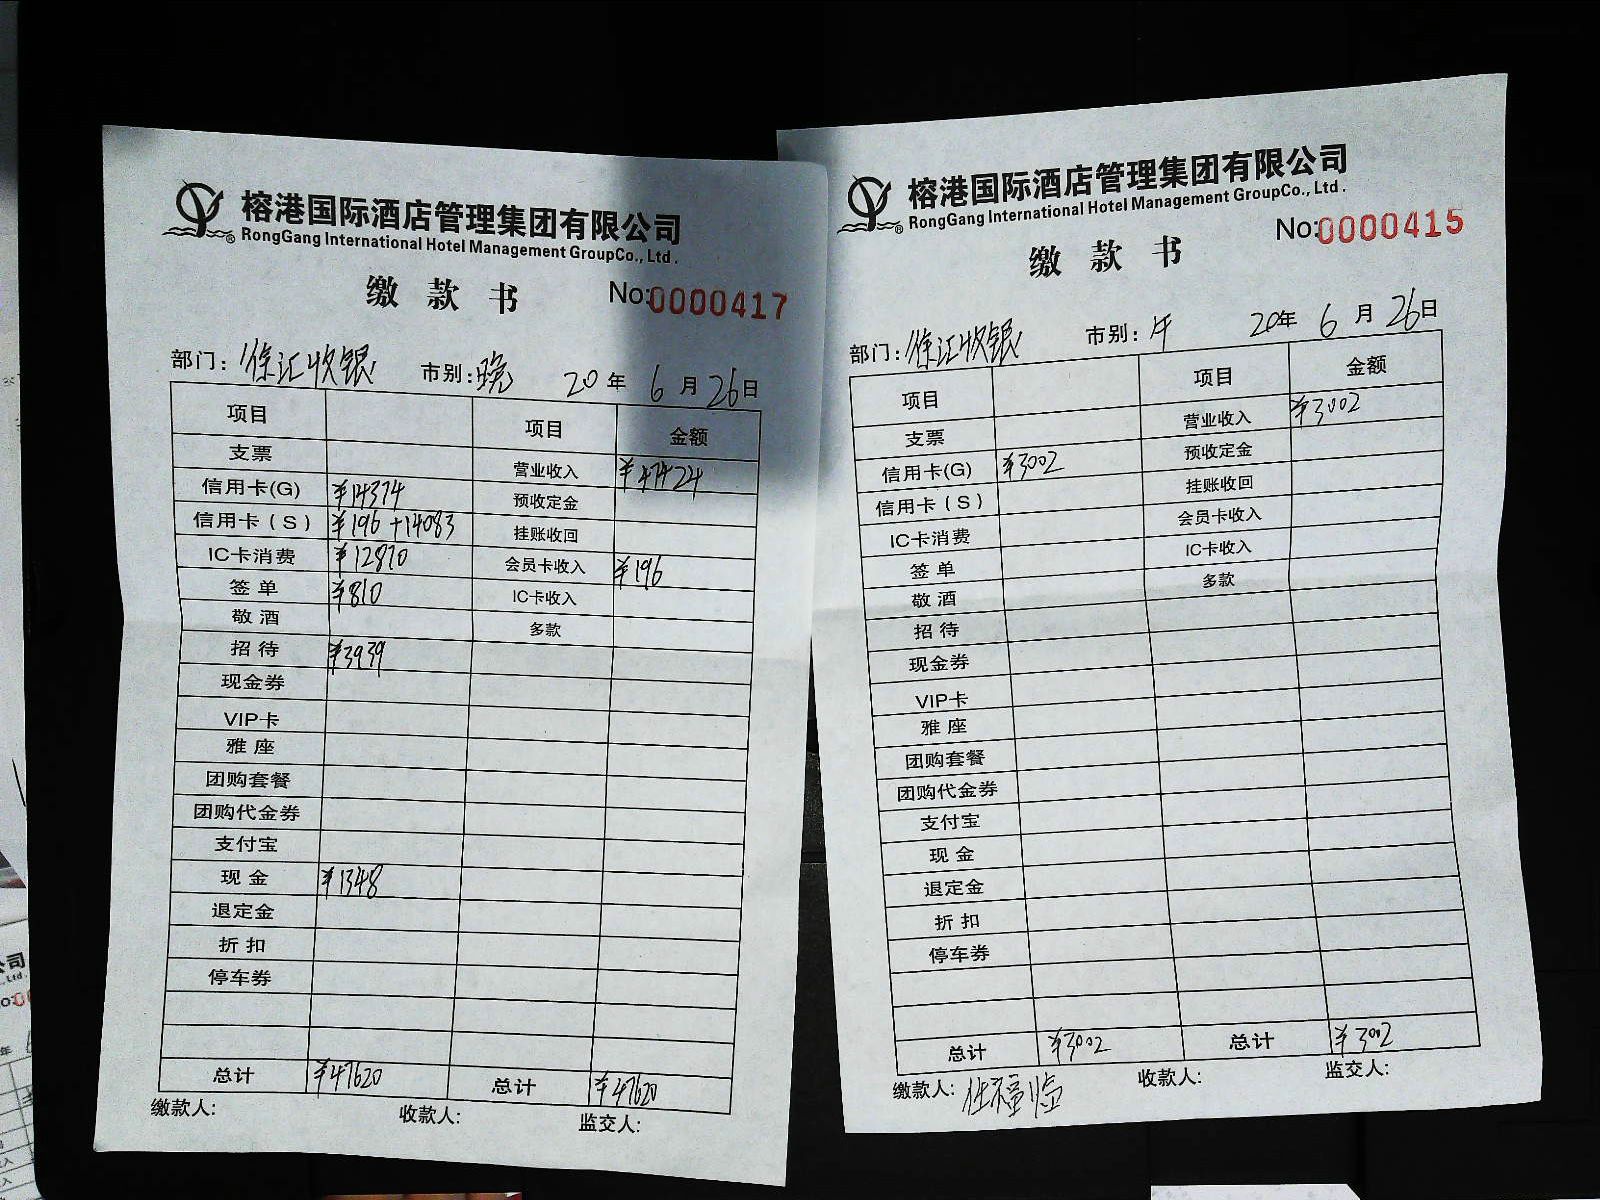 榕港国际酒店管理集团有限公司
RongGang International Hotel Management GroupCo., Ltd.
缴款书 No:0000417
部门: 徐汇收银 市别: 晚 20年 6月 26日
项目 项目 金额
支票 营业收入 ¥47424
信用卡(G) ¥14374 预收定金
信用卡(S) ¥196+14083 挂账收回
IC卡消费 ¥12870 会员卡收入 ¥196
签单 ¥810 IC卡收入
敬酒 多款
招待 ¥3939
现金券
VIP卡
雅座
团购套餐
团购代金券
支付宝
现金 ¥1348
退定金
折扣
停车券
总计 ¥47620 总计 ¥47620
缴款人: 收款人: 监交人:
榕港国际酒店管理集团有限公司
RongGang International Hotel Management GroupCo., Ltd.
缴款书 No:0000415
部门: 徐汇收银 市别: 午 20年 6月 26日
项目 项目 金额
支票 营业收入 ¥3002
信用卡(G) ¥3002 预收定金
信用卡(S) 挂账收回
IC卡消费 会员卡收入
签单 IC卡收入
敬酒 多款
招待
现金券
VIP卡
雅座
团购套餐
团购代金券
支付宝
现金
退定金
折扣
停车券
总计 ¥3002 总计 ¥3002
缴款人: 收款人: 监交人: